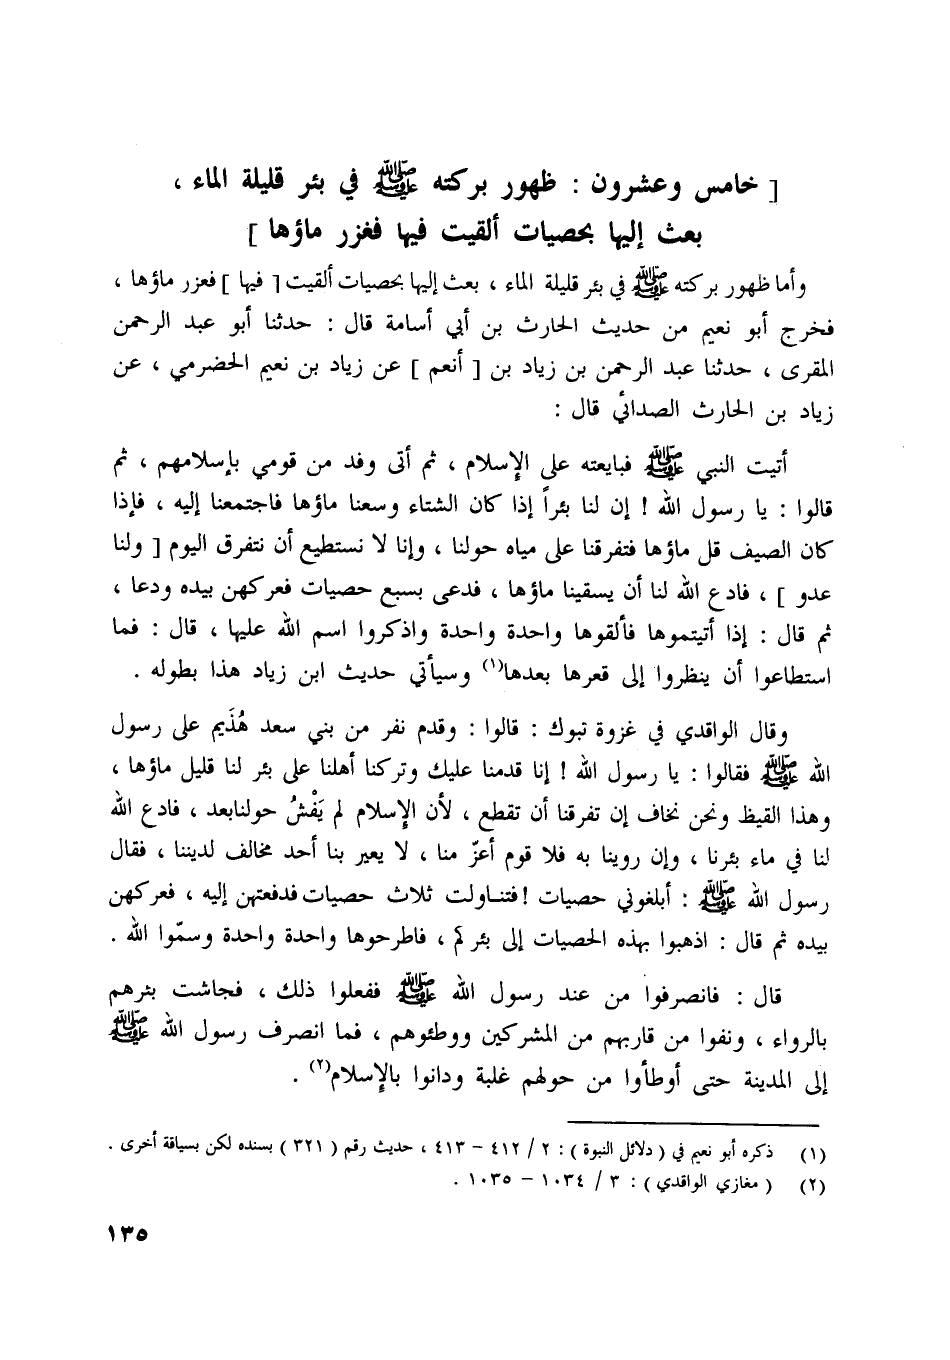 [ خامس وعشرون : ظهور بركته ﷺ في بئر قليلة الماء ،
بعث إليها بحصيات ألقيت فيها فغزر ماؤها ]
وأما ظهور بركته ﷺ في بئر قليلة الماء ، بعث إليها بحصيات ألقيت [ فيها ] فعزر ماؤها ،
فخرج أبو نعيم من حديث الحارث بن أبي أسامة قال : حدثنا أبو عبد الرحمن
المقرى ، حدثنا عبد الرحمن بن زياد بن [ أنعم ] عن زياد بن نعيم الحضرمي ، عن
زياد بن الحارث الصدائي قال :
أتيت النبي ﷺ فبايعته على الإسلام ، ثم أتى وفد من قومي بإسلامهم ، ثم
قالوا : يا رسول الله ! إن لنا بئراً إذا كان الشتاء وسعنا ماؤها فاجتمعنا إليه ، فإذا
كان الصيف قل ماؤها فتفرقنا على مياه حولنا ، وإنا لا نستطيع أن نتفرق اليوم [ ولنا
عدو ] ، فادع الله لنا أن يسقينا ماؤها ، فدعى بسبع حصيات فعركهن بيده ودعا ،
ثم قال : إذا أتيتموها فألقوها واحدة واحدة واذكروا اسم الله عليها ، قال : فما
استطاعوا أن ينظروا إلى قعرها بعدها(١) وسيأتي حديث ابن زياد هذا بطوله .
وقال الواقدي في غزوة تبوك : قالوا : وقدم نفر من بني سعد هُذَيم على رسول
الله ﷺ فقالوا : يا رسول الله ! إنا قدمنا عليك وتركنا أهلنا على بئر لنا قليل ماؤها ،
وهذا القيظ ونحن نخاف إن تفرقنا أن تقطع ، لأن الإسلام لم يَفْشُ حولنابعد ، فادع الله
لنا في ماء بئرنا ، وإن روينا به فلا قوم أعزّ منا ، لا يعير بنا أحد مخالف لديننا ، فقال
رسول الله ﷺ : أبلغوني حصيات ! فتناولت ثلاث حصيات فدفعتهن إليه ، فعركهن
بيده ثم قال : اذهبوا بهذه الحصيات إلى بئركم ، فاطرحوها واحدة واحدة وسمّوا الله .
قال : فانصرفوا من عند رسول الله ﷺ ففعلوا ذلك ، فجاشت بئرهم
بالرواء ، ونفوا من قاربهم من المشركين ووطئوهم ، فما انصرف رسول الله ﷺ
إلى المدينة حتى أوطأوا من حولهم غلبة ودانوا بالإسلام(٢) .
(١) ذكره أبو نعيم في ( دلائل النبوة ) : ٢ / ٤١٢ - ٤١٣ ، حديث رقم ( ٣٢١ ) بسنده لكن بسياقة أخرى .
(٢) ( مغازي الواقدي ) : ٣ / ١٠٣٤ - ١٠٣٥ .
١٣٥